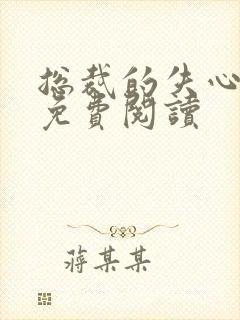 总裁的失心
免費閱讀
蔣某某